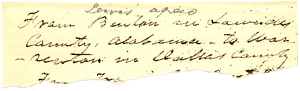 From Benton in Lowndes
County, Alabama - to War-
renton in Dallas County